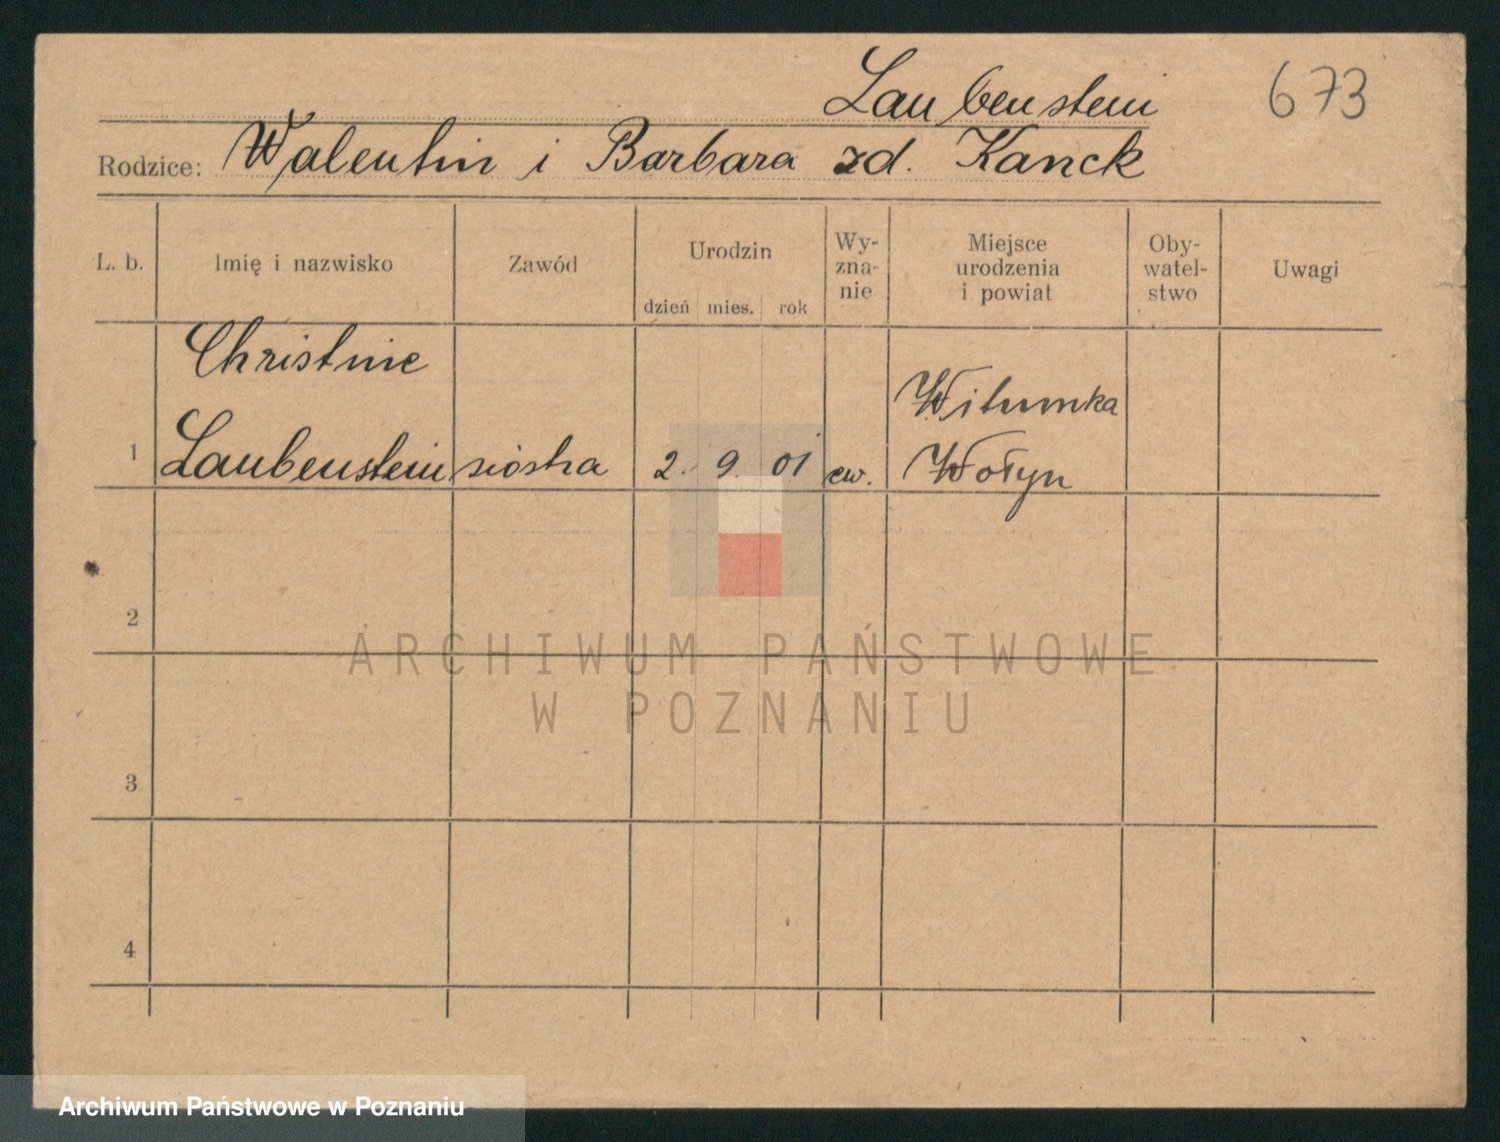 Laubenstein 673
Rodzice: Walentin i Barbara zd. Kanck
L. b. Imię i nazwisko Zawód Urodzin dzień mies. rok Wy-zna-nie Miejsce urodzenia i powiat Oby-watel-stwo Uwagi
Christine
Witumka
1 Laubenstein siostra 2. 9. 01 ew. Wołyn
2
3
4
ARCHIWUM PAŃSTWOWE
W POZNANIU
Archiwum Państwowe w Poznaniu